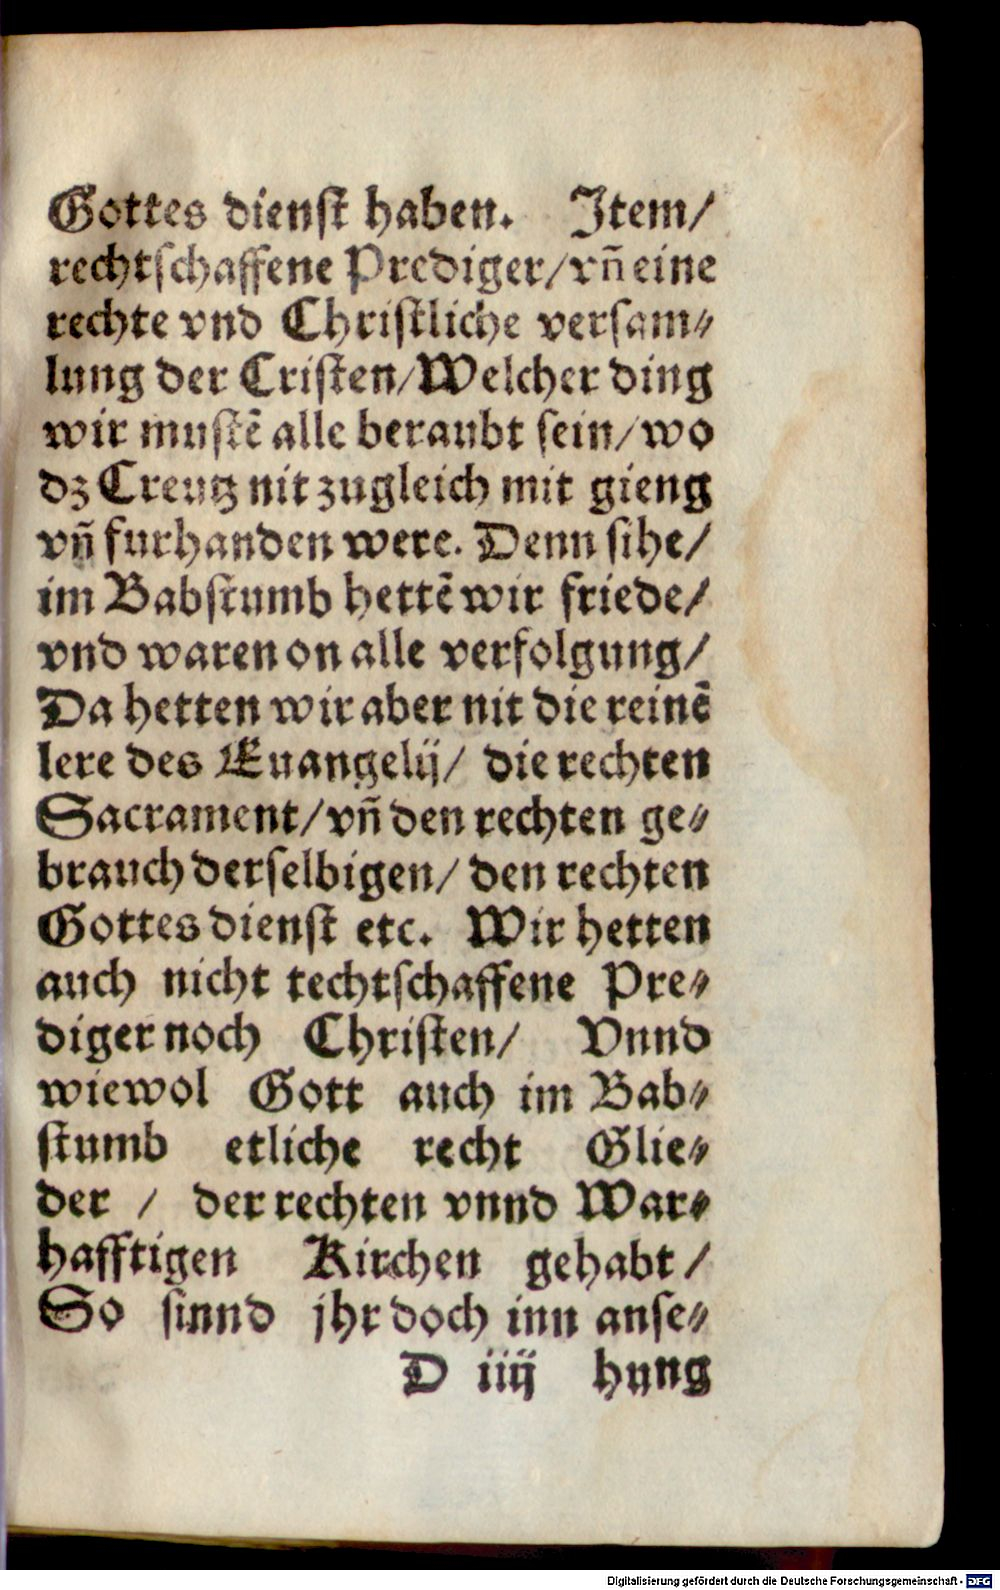 Gottes dienſt haben. Item/
rechtſchaffene Prediger/vñ eine
rechte vnd Chriſtliche verſam⸗
lung der Criſten/Welcher ding
wir muſtẽ alle beraubt ſein/wo
dz Creutz nit zugleich mit gieng
vñ furhanden were. Denn ſihe/
im Babſtumb hettẽ wir friede/
vnd waren on alle verfolgung/
Da hetten wir aber nit die reinẽ
lere des Euangelij/ die rechten
Sacrament/vñ den rechten ge⸗
brauch derſelbigen/ den rechten
Gottes dienſt etc. Wir hetten
auch nicht techtſchaffene Pre⸗
diger noch Chriſten/ Vnnd
wiewol Gott auch im Bab⸗
ſtumb etliche recht Glie⸗
der / der rechten vnnd War⸗
hafftigen Kirchen gehabt/
So ſinnd jhr doch inn anſe⸗
D iiij hung
Digitalisierung gefördert durch die Deutsche Forschungsgemeinschaft - DFG